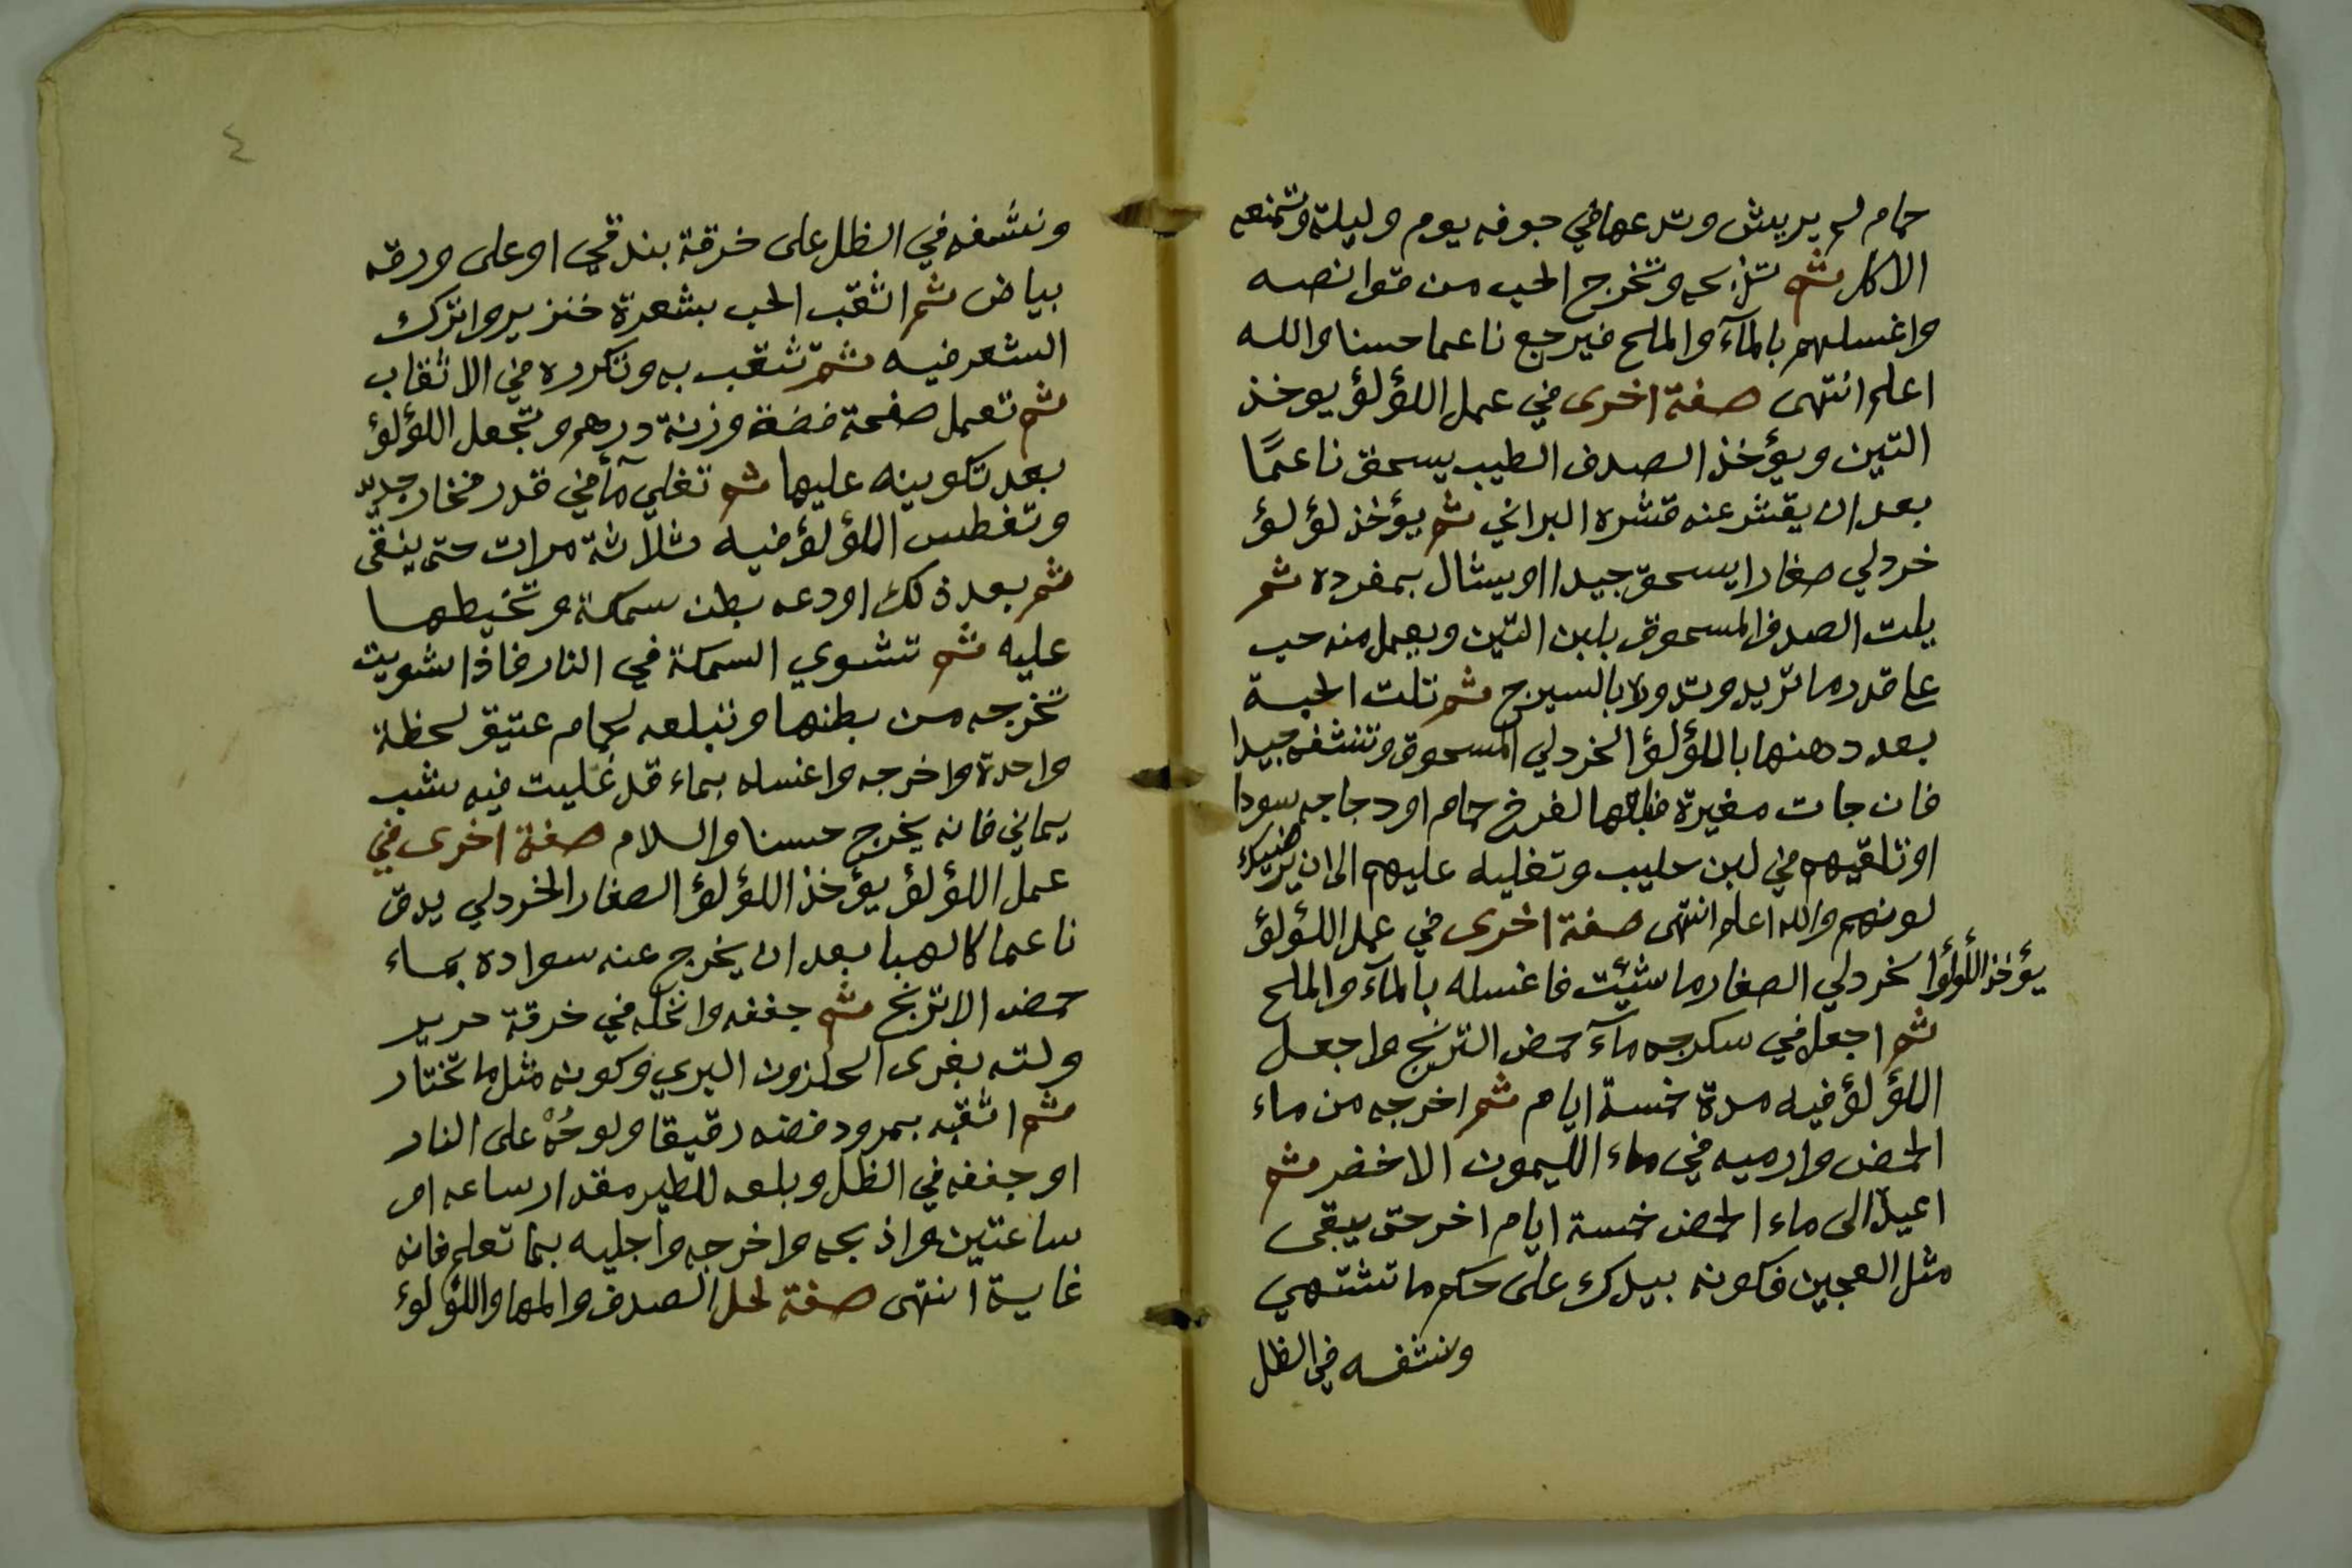 حمام لم يريش وتدعها في جوفه يوم وليلة وتمنعه
الاكل ثم تذبحه وتخرج الحب من قوانصه
واغسلهم بالمآء والملح فيرجع ناعما حسنا والله
اعلم انتهى صفة اخرى في عمل اللؤلؤ يوخذ
التين ويؤخذ الصدف الطيب يسحق ناعمًا
بعد ان يقشر عنه قشره البراني ثم يؤخذ لؤلؤ
خردلي صغارا يسحق جيدا او يشال بمفرده ثم
يلت الصدف المسحوق بلبن التين ويعمل منه حب
على قدر ما تريد وتدولا بالسيرج ثم تلت الحبة
بعد دهنها باللؤلؤ الخردلي المسحوق وتنشفه جيدا
فان جات مغيرة فبلعها لفرخ حمام او دجاجه سودا
او تلقيهم في لبن حليب وتغليه عليهم الى ان يرضيك
لونهم والله اعلم انتهى صفة اخرى في عمل اللؤلؤ
يؤخذ اللؤلؤ الخردلي الصغار ما شئت فاغسله بالمآء والملح
ثم اجعل في سكرجه مآء حمض الترنج واجعل
اللؤلؤ فيه مدة خمسة ايام ثم اخرجه من ماء
الحمض وارميه في ماء الليمون الاخضر ثم
اعيده الى ماء الحمض خمسة ايام اخر حتى يبقى
مثل العجين فكونه بيدك على حكم ما تشتهي
وننشفه في الظل
٤
ونشفه في الظل على خرقة بندقي او على ورقه
بياض ثم اثقب الحب بشعرة خنزير واترك
الشعر فيه ثم تثقب به وتكرره في الاثقاب
ثم تعمل صفحة فضة وزنة درهم وتجعل اللؤلؤ
بعد تكوينه عليها ثم تغلي مآء في قدر فخار جديد
وتغطس اللؤلؤ فيه ثلاثة مرات حتى ينقى
ثم بعد ذلك اودعه بطن سمكة وتخيطها
عليه ثم تشوي السمكة في النار فاذا شويت
تخرجه من بطنها وتبلعه لحمام عتيق لحظة
واحدة واخرجه واغسله بماء قد غليت فيه شب
يماني فانه يخرج حسنا والسلام صفة اخرى في
عمل اللؤلؤ يؤخذ اللؤلؤ الصغار الخردلي يدق
ناعما كالهبا بعد ان يخرج عنه سواده بماء
حمض الاترنج ثم جففه وانخله في خرقة حرير
ولته بغرى الحلزون البري وكونه مثل ما تختار
ثم اثقبه بمرود فضه رقيقا ولوحُهْ على النار
او جففه في الظل وبلعه للطير مقدار ساعه او
ساعتين واذبحه واخرجه واجليه بما تعلم فانه
غاية انتهى صفة لحل الصدف والمها واللؤلؤ